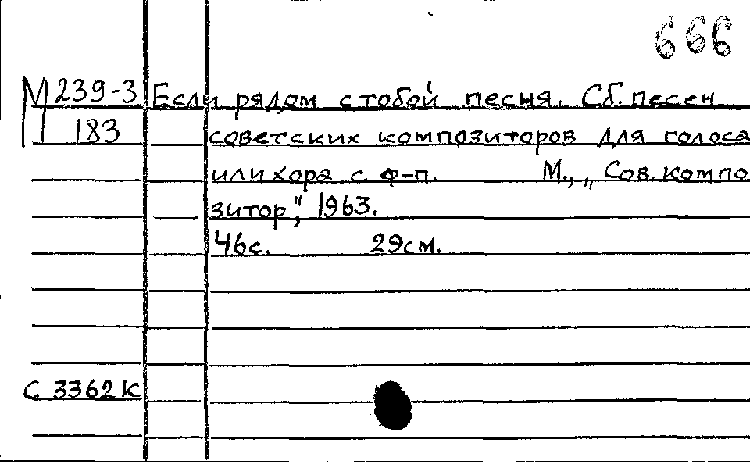 666
М 239-3 Если рядом с тобой песня. Сб. песен
183 советских композиторов для голоса
или хора с ф-п. М., „Сов. компо
зитор", 1963.
46с. 29см.
С 3362К